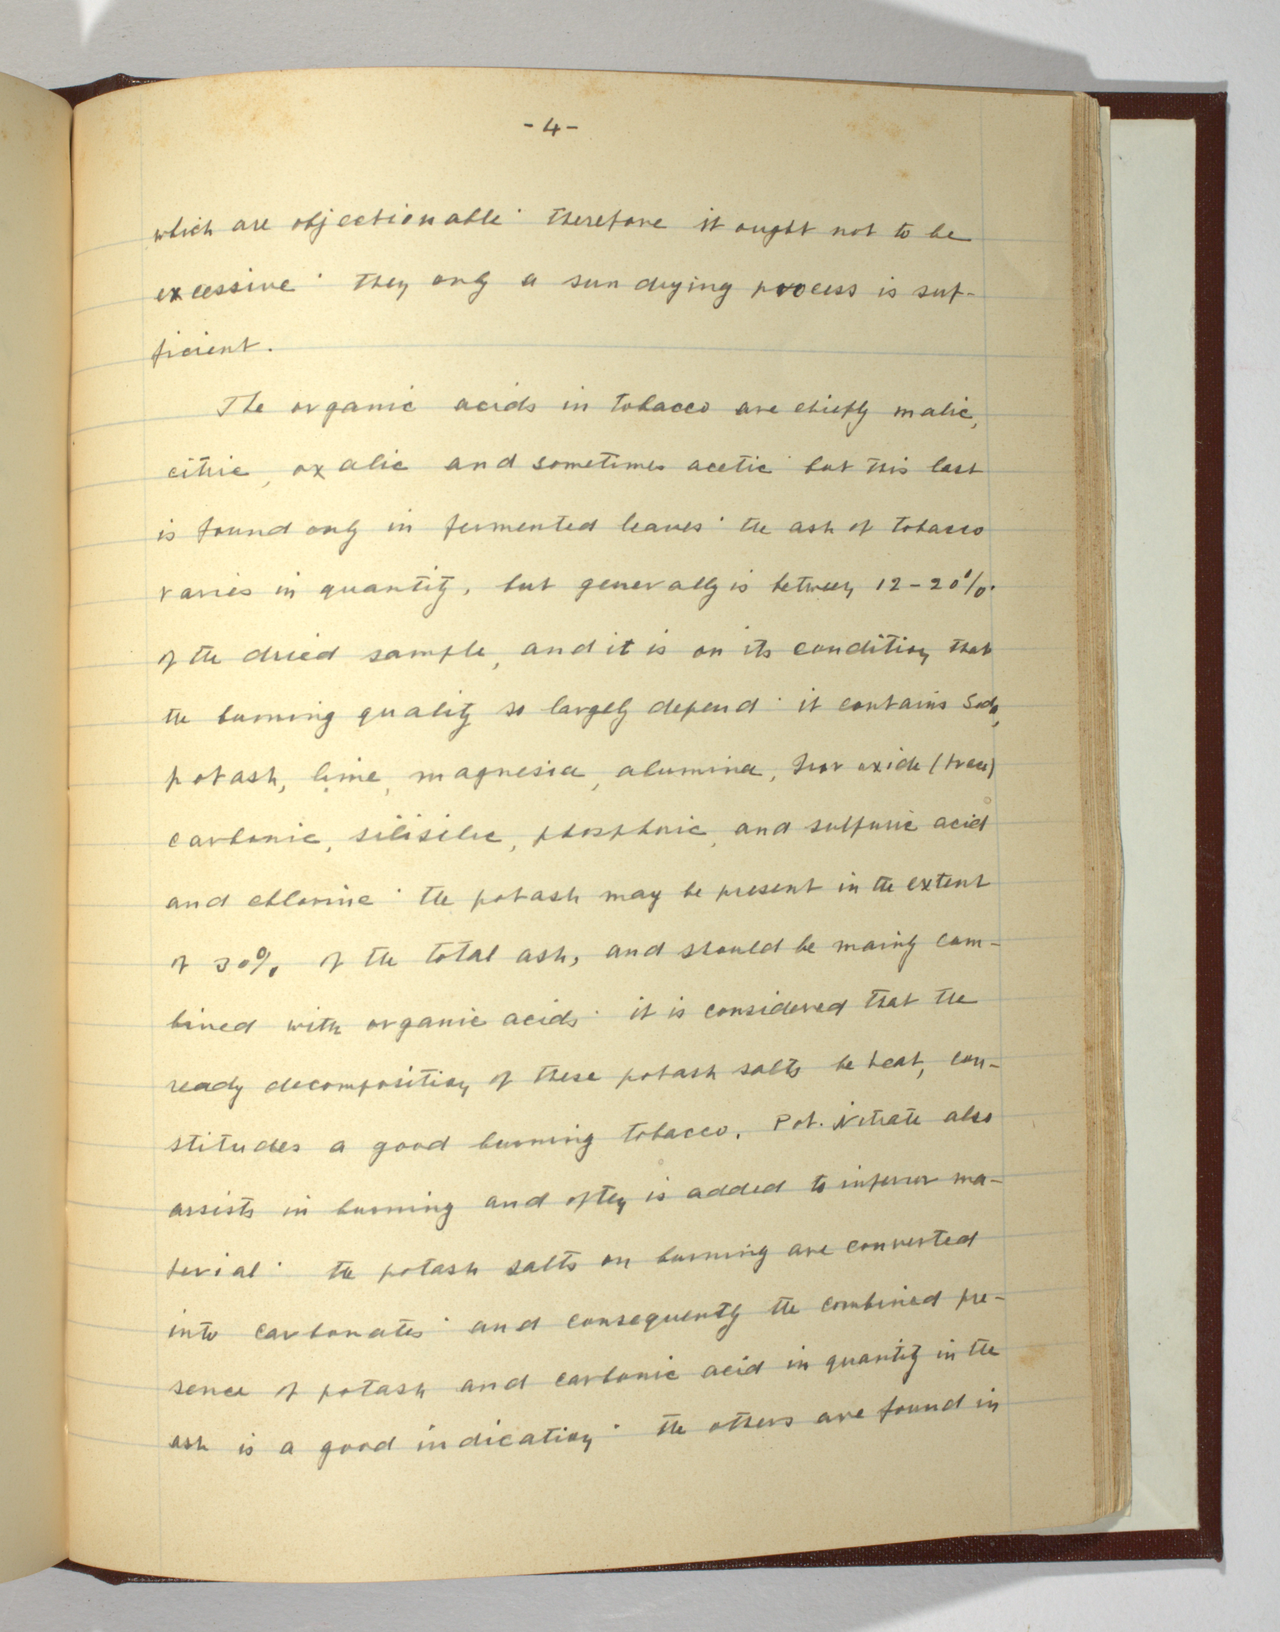 -4-
which are objectionable · therefore it ought not to be
excessive · They only a sun drying process is suf-
ficient.
The organic acids in tobacco are chiefly malic,
citric, oxalic and sometimes acetic · but this last
is found only in fermented leaves · the ash of tobacco
varies in quantity, but generally is between 12-20%.
of the dried sample, and it is on its condition that
the burning quality so largely depend · it contains Soda,
potash, lime, magnesia, alumina, Iron oxide (trace)
carbonic, silisilic, phosphoric, and sulfuric acid
and chlorine · the potash may be present in the extent
of 30% of the total ash, and should be mainly com-
bined with organic acids · it is considered that the
ready decomposition of these potash salts be heat, con-
stitudes a good burning tobacco. Pot. Nitrate also
assists in burning and often is added to inferior ma-
terial · the potash salts on burning are converted
into carbonates · and consequently the combined pre-
sence of potash and carbonic acid in quantity in the
ash is a good indication · the others are found in